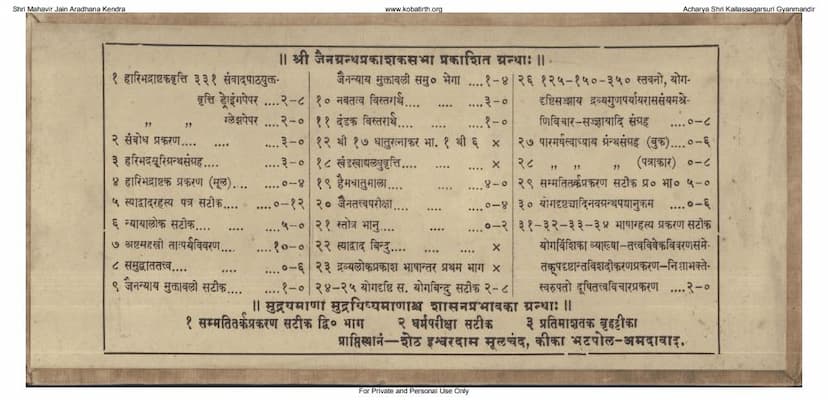 Shri Mahavir Jain Aradhana Kendra
www.kobatirth.org
Acharya Shri Kailassagarsuri Gyanmandir
॥ श्री जैनग्रन्थप्रकाशकसभा प्रकाशित ग्रन्थाः ॥
१ हारिभद्राष्टकवृत्ति ३३१ संवादपाठयुक्त-
वृत्ति ड्रोइंगपेपर ....२-८
,, ,, ग्लेझपेपर ....२-०
२ संबोध प्रकरण.... .... ....३-०
३ हरिभद्रसूरिग्रन्थसंग्रह.... ....३-०
४ हारिभद्राष्टक प्रकरण (मूल).... ....०-४
५ स्याद्वादरहस्य पत्र सटीक.... ....०-१२
६ न्यायालोक सटीक.... ....५-०
७ अष्टसहस्री तात्पर्यविवरण.... ....१०-०
८ समुद्घाततत्त्व .... ....०-६
९ जैनन्याय मुक्तावली सटीक ....१-०
जैनन्याय मुक्तावली समु० भेगा ....१-४
१० नवतत्व विस्तरार्थ.... .... ....३-०
११ दंडक विस्तरार्थ.... .... ....१-०
१२ थी १७ धातुरत्नाकर भा. १ थी ६ ×
१८ खंडखाद्यलघुवृत्ति.... .... ×
१९ हैमधातुमाला.... .... ....४-०
२० जैनतत्त्वपरीक्षा.... .... ....०-४
२१ स्तोत्र भानु.... .... ....०-२
२२ स्याद्वाद बिन्दु.... .... .... ×
२३ द्रव्यलोकप्रकाश भाषान्तर प्रथम भाग ×
२४-२५ योगदृष्टि स. योगबिन्दु सटीक २-८
२६ १२५-१५०-३५० स्तवनो, योग-
दृष्टिसज्झाय द्रव्यगुणपर्यायराससंयमश्रे-
णिविचार-सज्झायादि संग्रह ....०-८
२७ पारमर्षस्वाध्याय ग्रंथसंग्रह (बुक)....०-६
२८ ,, ,, ,, (पत्राकार) ०-८
२९ सम्मतितर्कप्रकरण सटीक प्र० भा० ५-०
३० योगदृष्ट्यादिनवग्रन्थपद्यानुक्रम ....०-६
३१-३२-३३-३४ भाषारहस्य प्रकरण सटीक
योगविंशिका व्याख्या-तत्त्वविवेकविवरणसमे-
तकूपदृष्टान्तविशदीकरणप्रकरण-निशाभक्ते-
स्वरूपतो दूषितत्त्वविचारप्रकरण ....२-०
॥ मुद्र्यमाणा मुद्रयिष्यमाणाश्च शासनप्रभावका ग्रन्थाः ॥
१ सम्मतितर्कप्रकरण सटीक द्वि० भाग २ धर्मपरीक्षा सटीक ३ प्रतिमाशतक बृहट्टीका
प्राप्तिस्थानं—शेठ इश्वरदास मूलचंद, कीका भटपोल-अमदावाद.
For Private and Personal Use Only